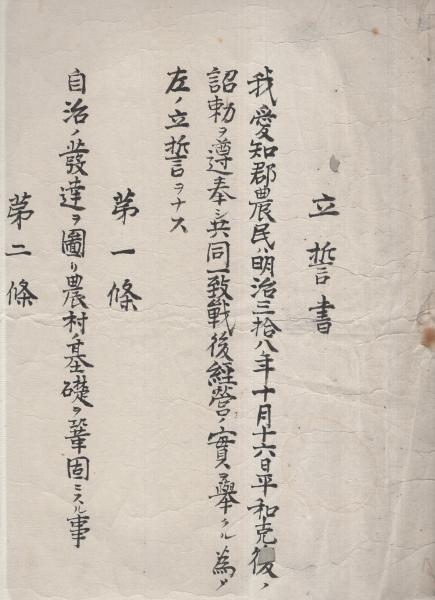 立誓書
我愛知郡農民ハ明治三拾八年十月十六日平和克復ノ
詔勅ヲ遵奉シ共同一致戰後經營ノ實ヲ擧クル為メ
左ノ立誓ヲナス
第一條
自治ノ發達ヲ圖リ農村ノ基礎ヲ鞏固ニスル事
第二條